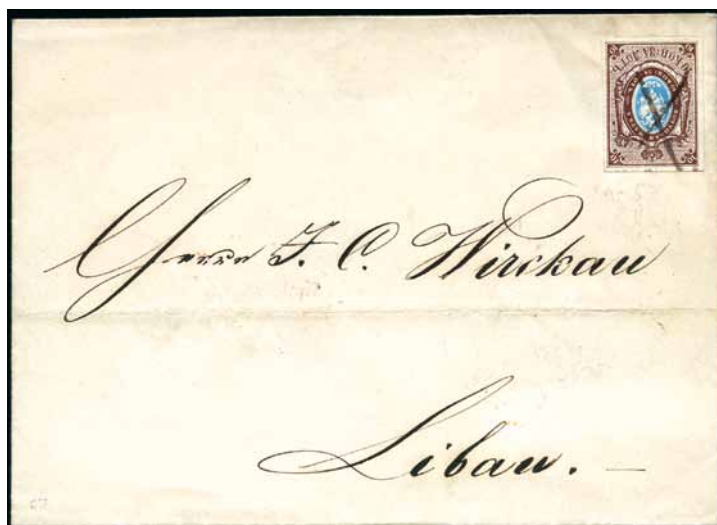 Herrn F. C. Wirckau
Libau. —